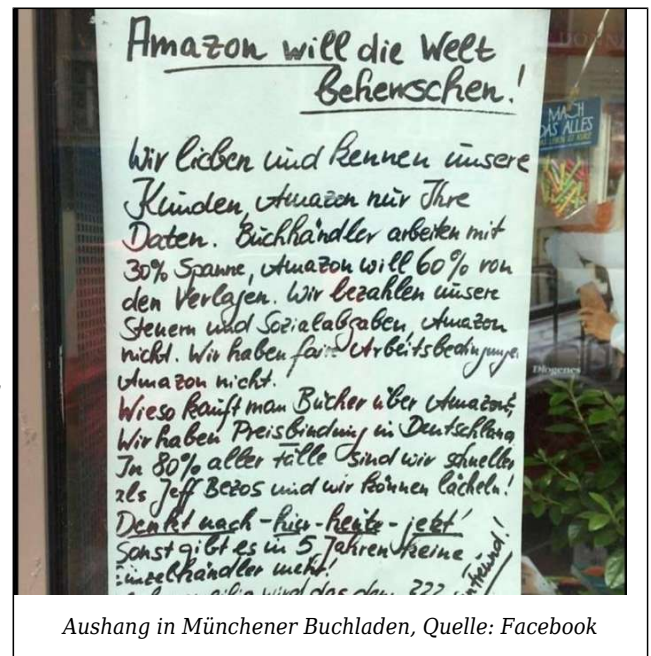 Amazon will die Welt
beherrschen!
Wir lieben und kennen unsere
Kunden, Amazon nur Ihre
Daten. Buchhändler arbeiten mit
30% Spanne, Amazon will 60% von
den Verlagen. Wir bezahlen unsere
Steuern und Sozialabgaben, Amazon
nicht. Wir haben faire Arbeitsbedingunge
Amazon nicht.
Wieso kauft man Bücher über Amazon?
Wir haben Preisbindung in Deutschland
In 80% aller Fälle sind wir schneller
als Jeff Bezos und wir können lächeln!
Denkt nach - hier - heute - jetzt!
Sonst gibt es in 5 Jahren keine
Einzelhändler mehr!
wird das dem ???
MACH
DAS ALLES
Diogenes
Aushang in Münchener Buchladen, Quelle: Facebook